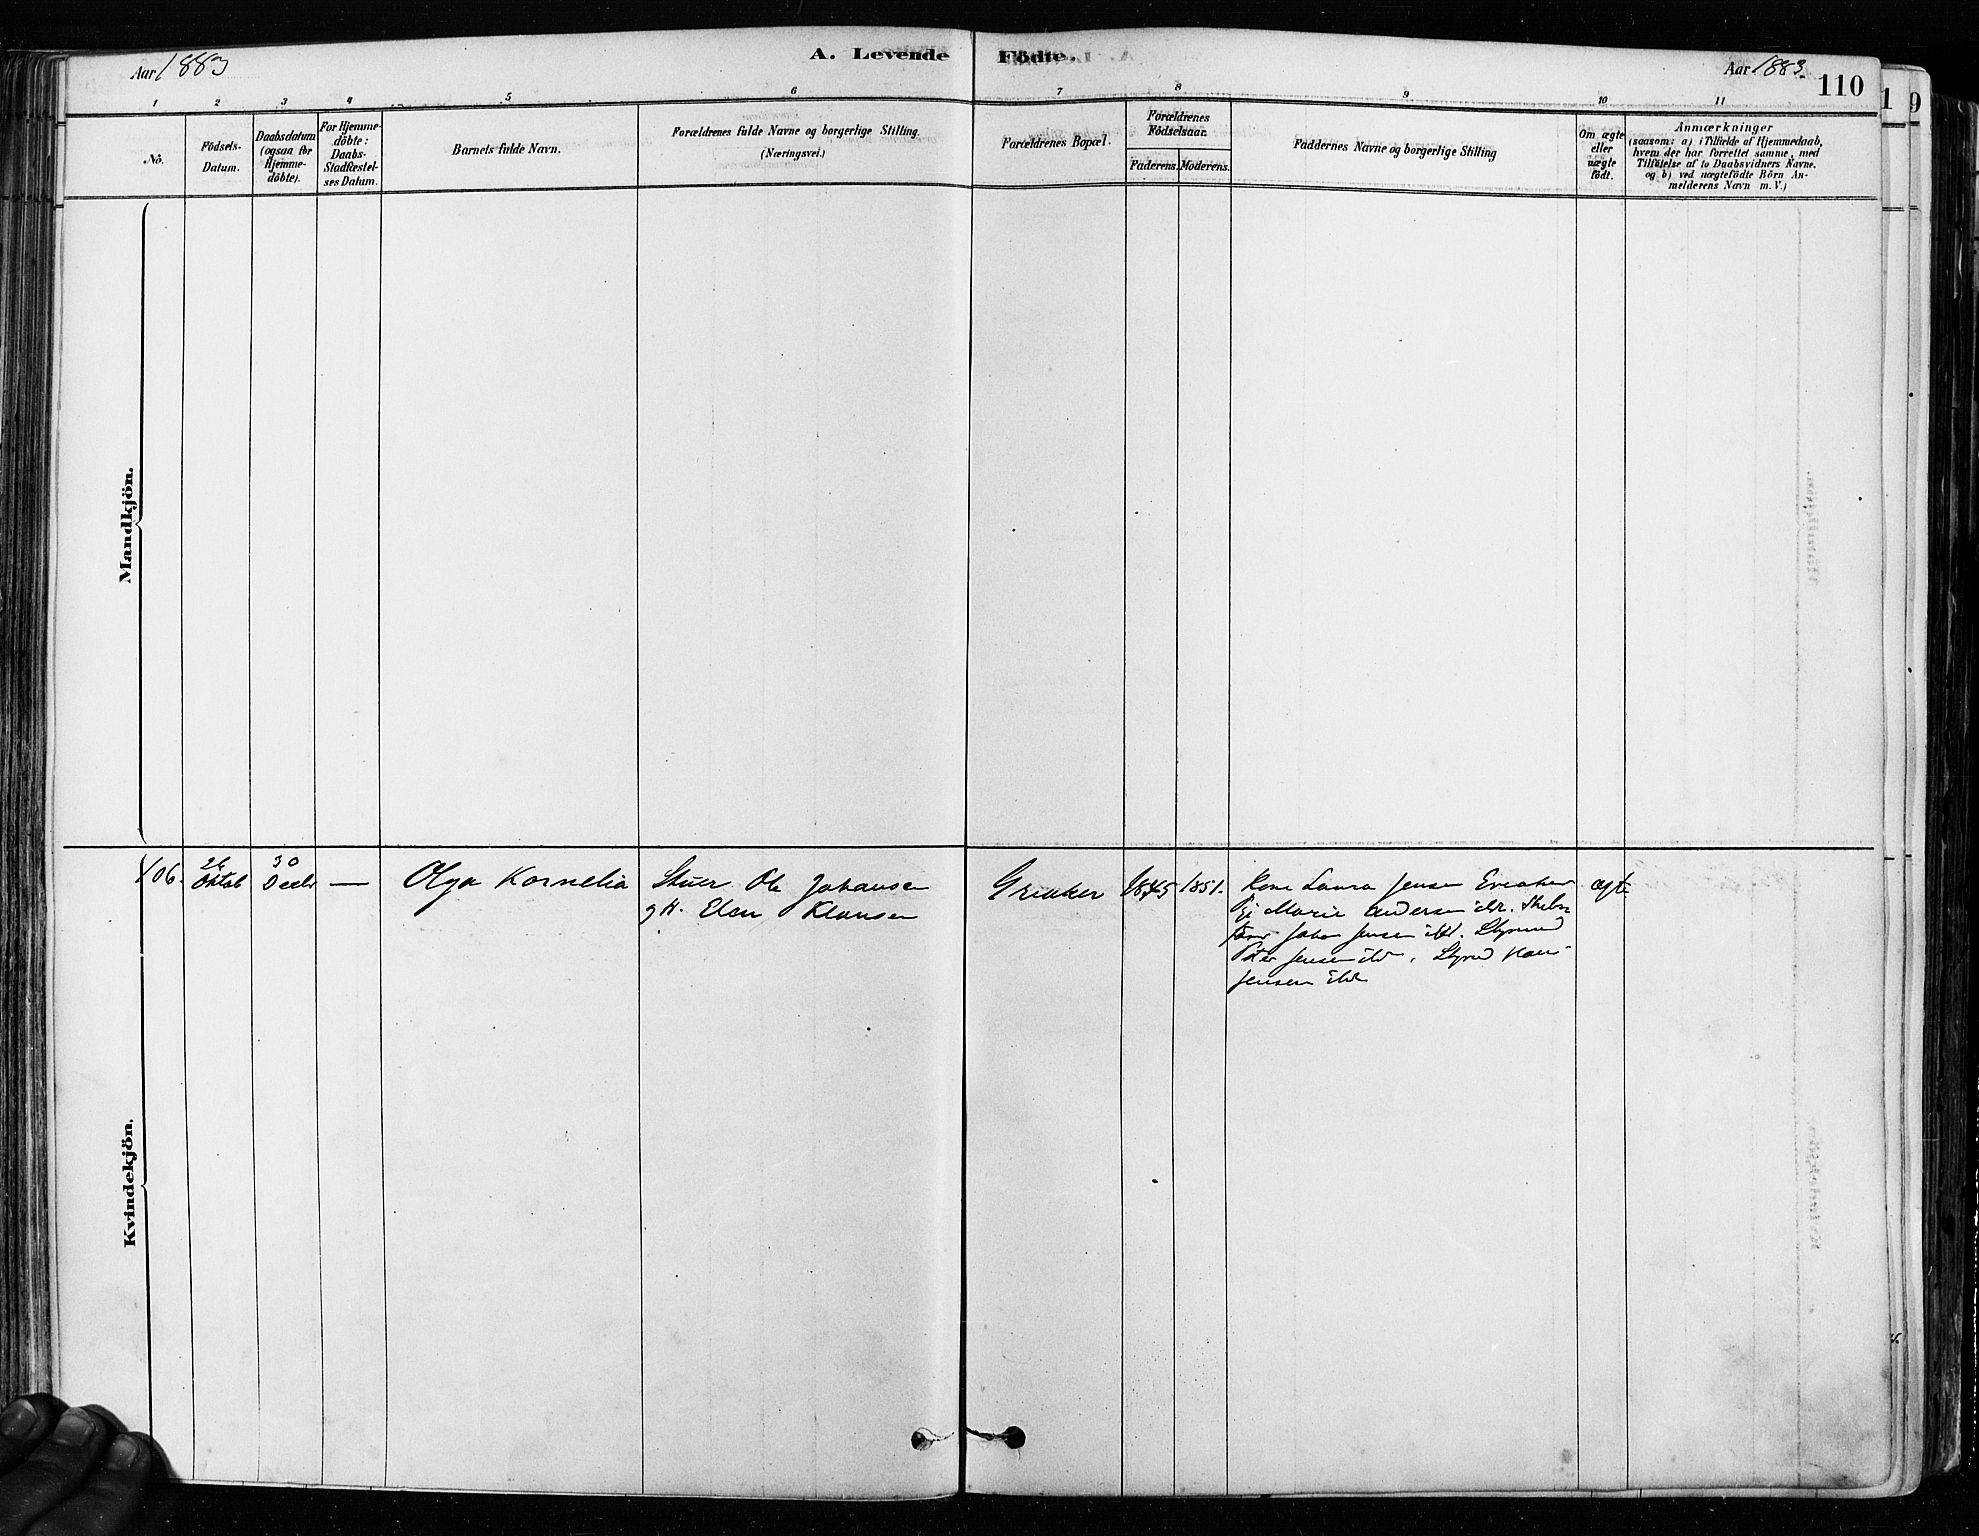 Aar 1883
A. Levende Födte.
Aar 1883.
110
1 2 3 4 5 6 7 8 9 10 11
No.
Födsels-
Datum.
Daabsdatum
(ogsaa for
Hjemme-
döbte).
For Hjemme-
döbte:
Daabs-
Stadfæstel-
ses Datum.
Barnets fulde Navn.
Forældrenes fulde Navne og borgerlige Stilling.
(Næringsvei.)
Forældrenes Bopæl.
Forældrenes
Födselsaar.
Faderens.
Moderens.
Faddernes Navne og borgerlige Stilling
Om ægte
eller
uægte
födt.
Anmærkninger
(saasom: a) i Tilfælde af Hjemmedaab,
hvem der har forrettet samme, med
Tilföielse af to Daabsvidners Navne.
og b) ved uægtefödte Börn An-
melderens Navn m. V.)
Mandkjön.
Kvindekjön.
106.
26
Oktob
30
Decbr
—
Olga Kornelia
Ole Johansen
Klausen
Greaker
1845
1851.
Kone Laura Jensen
Pi Marie Andersen
Jensen
Peter Jensen
Jensen
ægt.